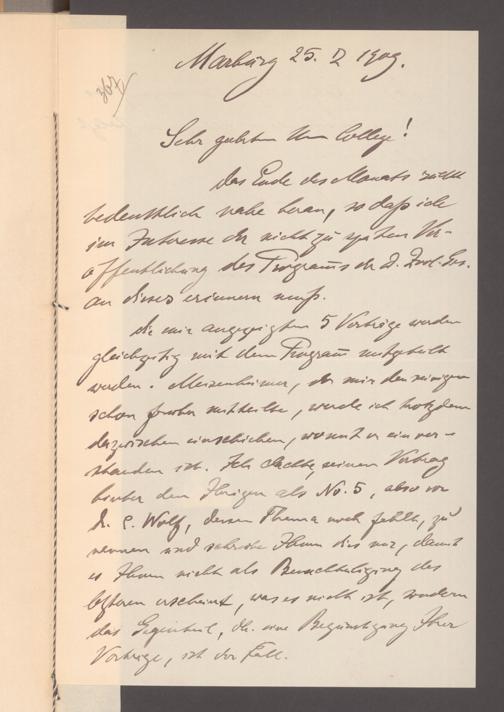 Marburg 25. V 1909.
367
Sehr geehrter Herr College!
Das Ende des Monats rückt
bedenklich nahe heran, so daß ich
im Interesse der nicht zu späten Ver-
öffentlichung des Programms der D. Zool. Ges.
an dieses erinnern muß.
Die mir angezeigten 5 Vorträge werden
gleichzeitig mit dem Program mitgeteilt
werden. Meisenheimer, der mir den seinigen
schon früher mitteilte, werde ich trotzdem
dazwischen einschieben, womit er einver-
standen ist. Ich dachte, seinen Vortrag
hinter den Ihrigen als No. 5, also vor
Dr. E. Wolf, dessen Thema noch fehlt, zu
nennen und schreibe Ihnen dies nur, damit
es Ihnen nicht als Benachteiligung des
letzteren erscheint, was es nicht ist, sondern
das Gegenteil, d.h. eine Begünstigung Ihrer
Vorträge, ist der Fall.